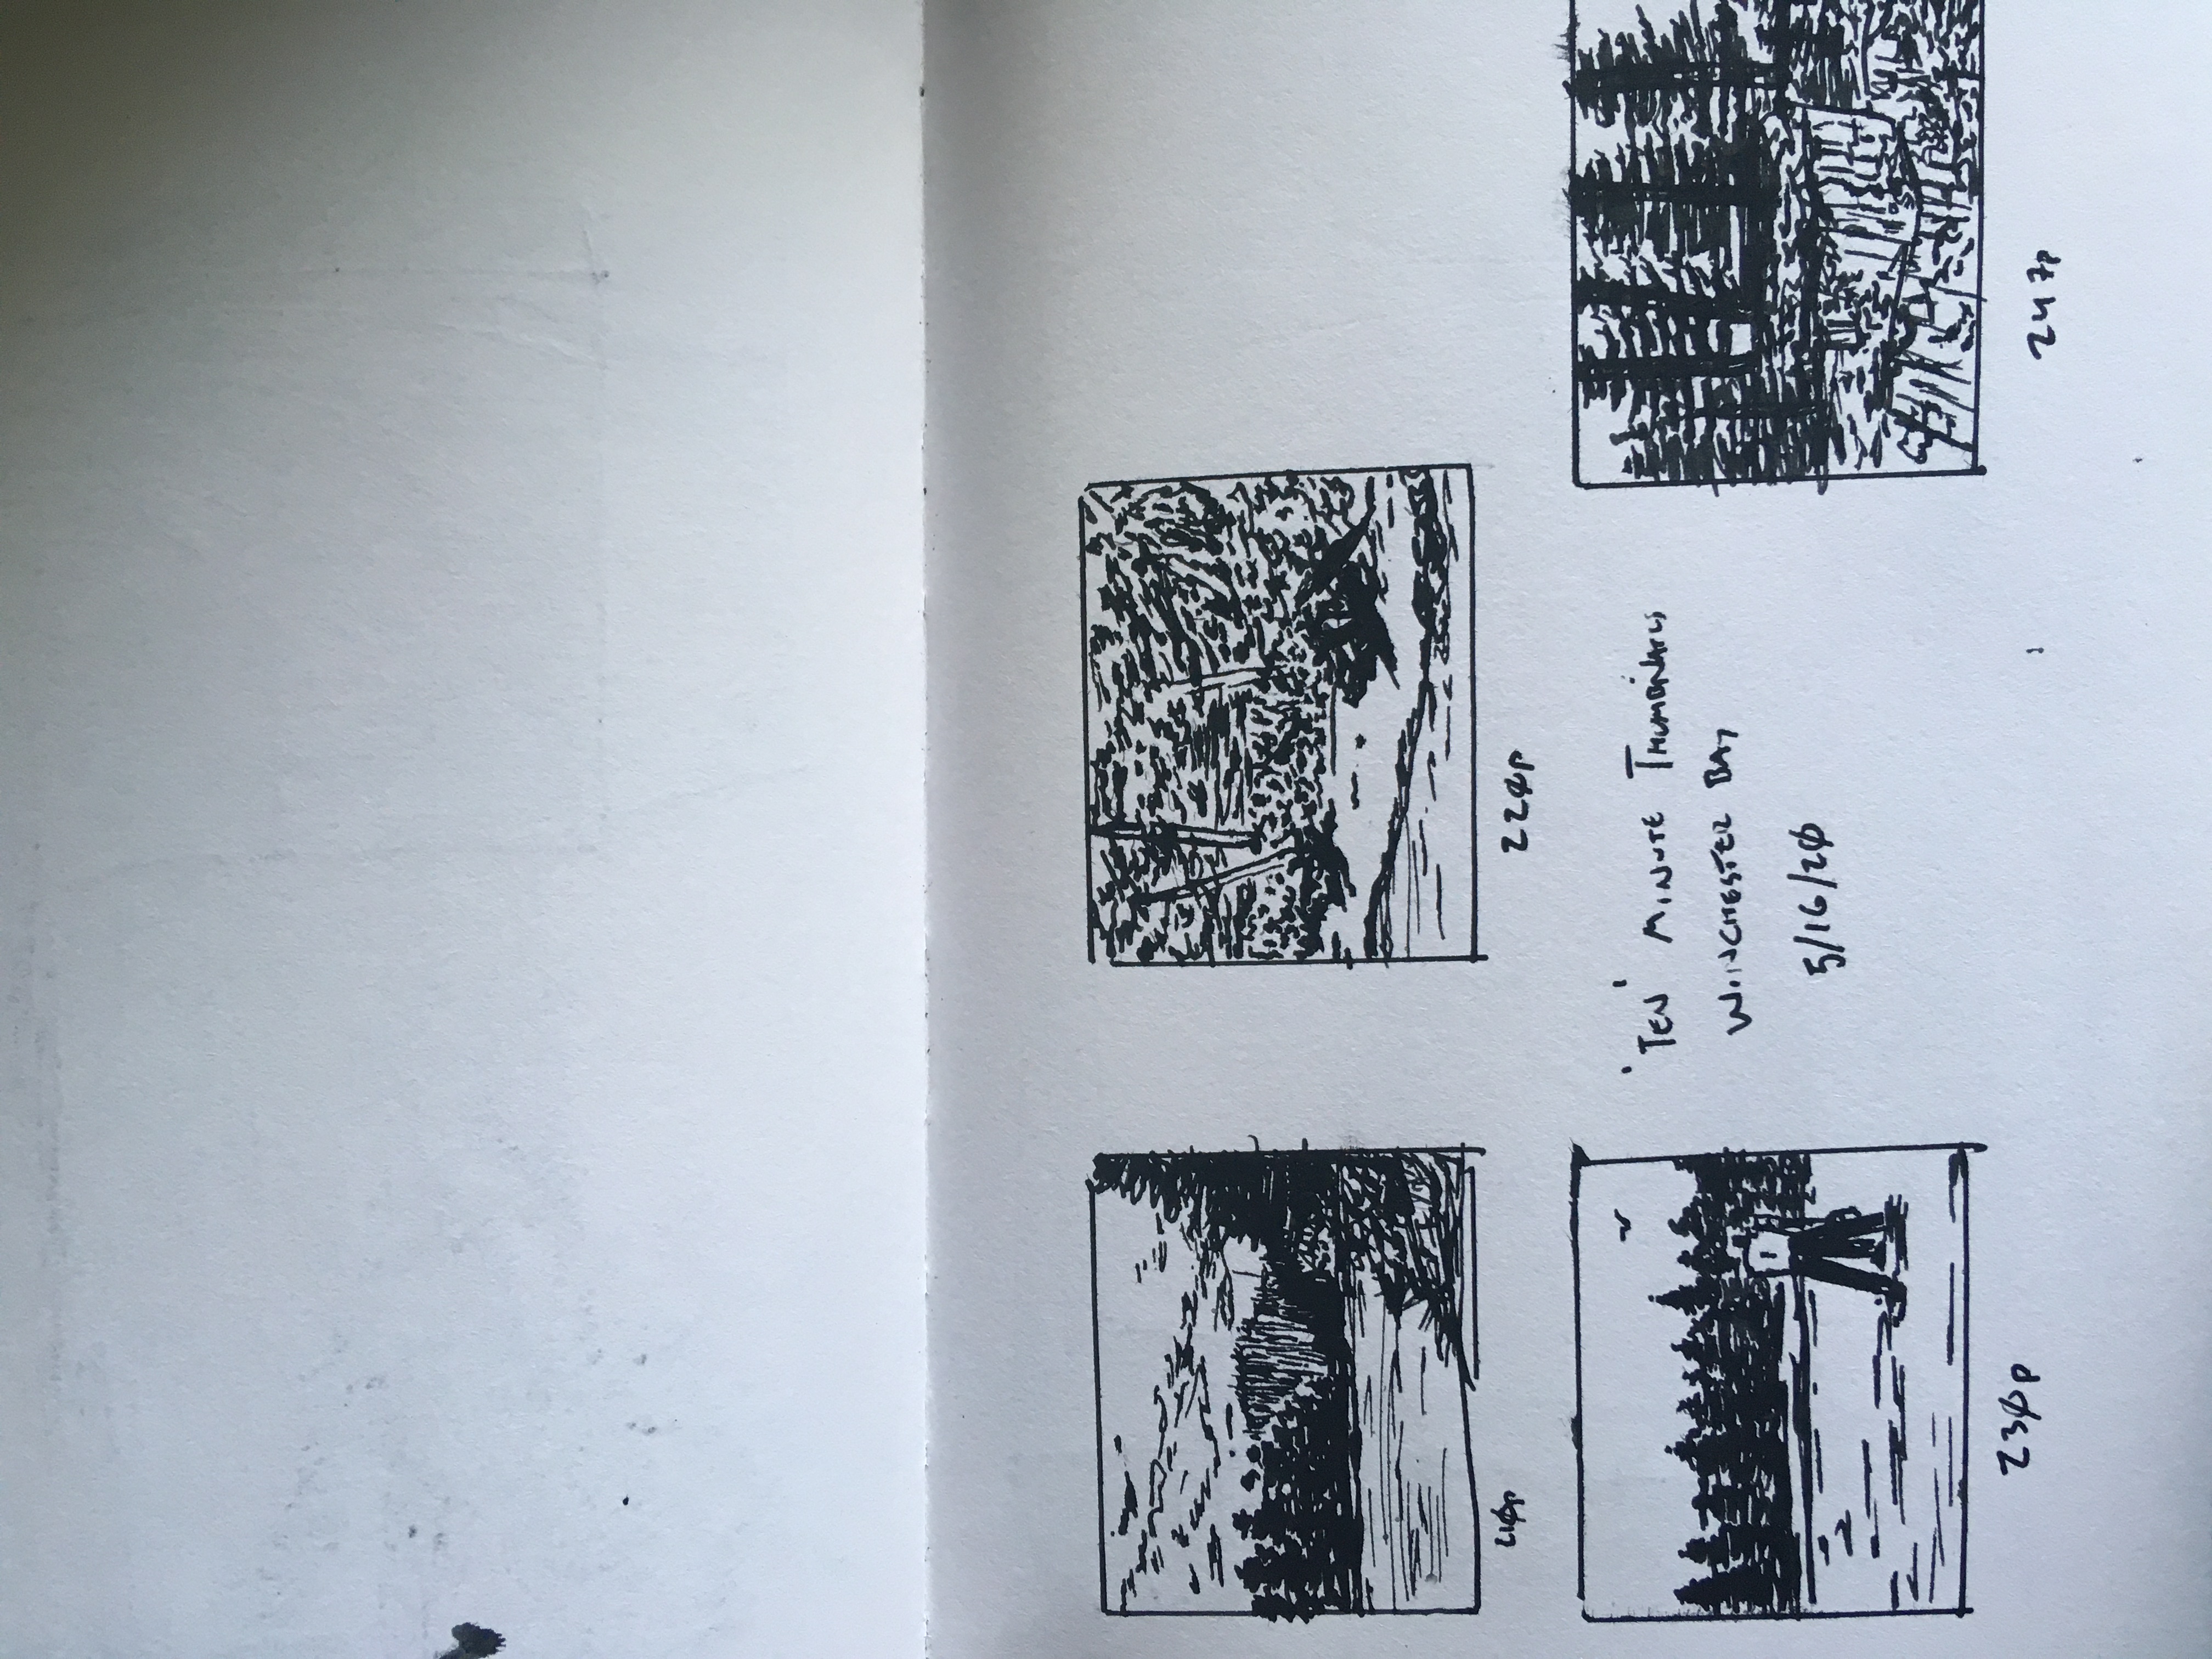 210p
220p
'TEN' MINUTE THUMBNAILS
WINCHESTER BAY
5/16/20
230p
247p